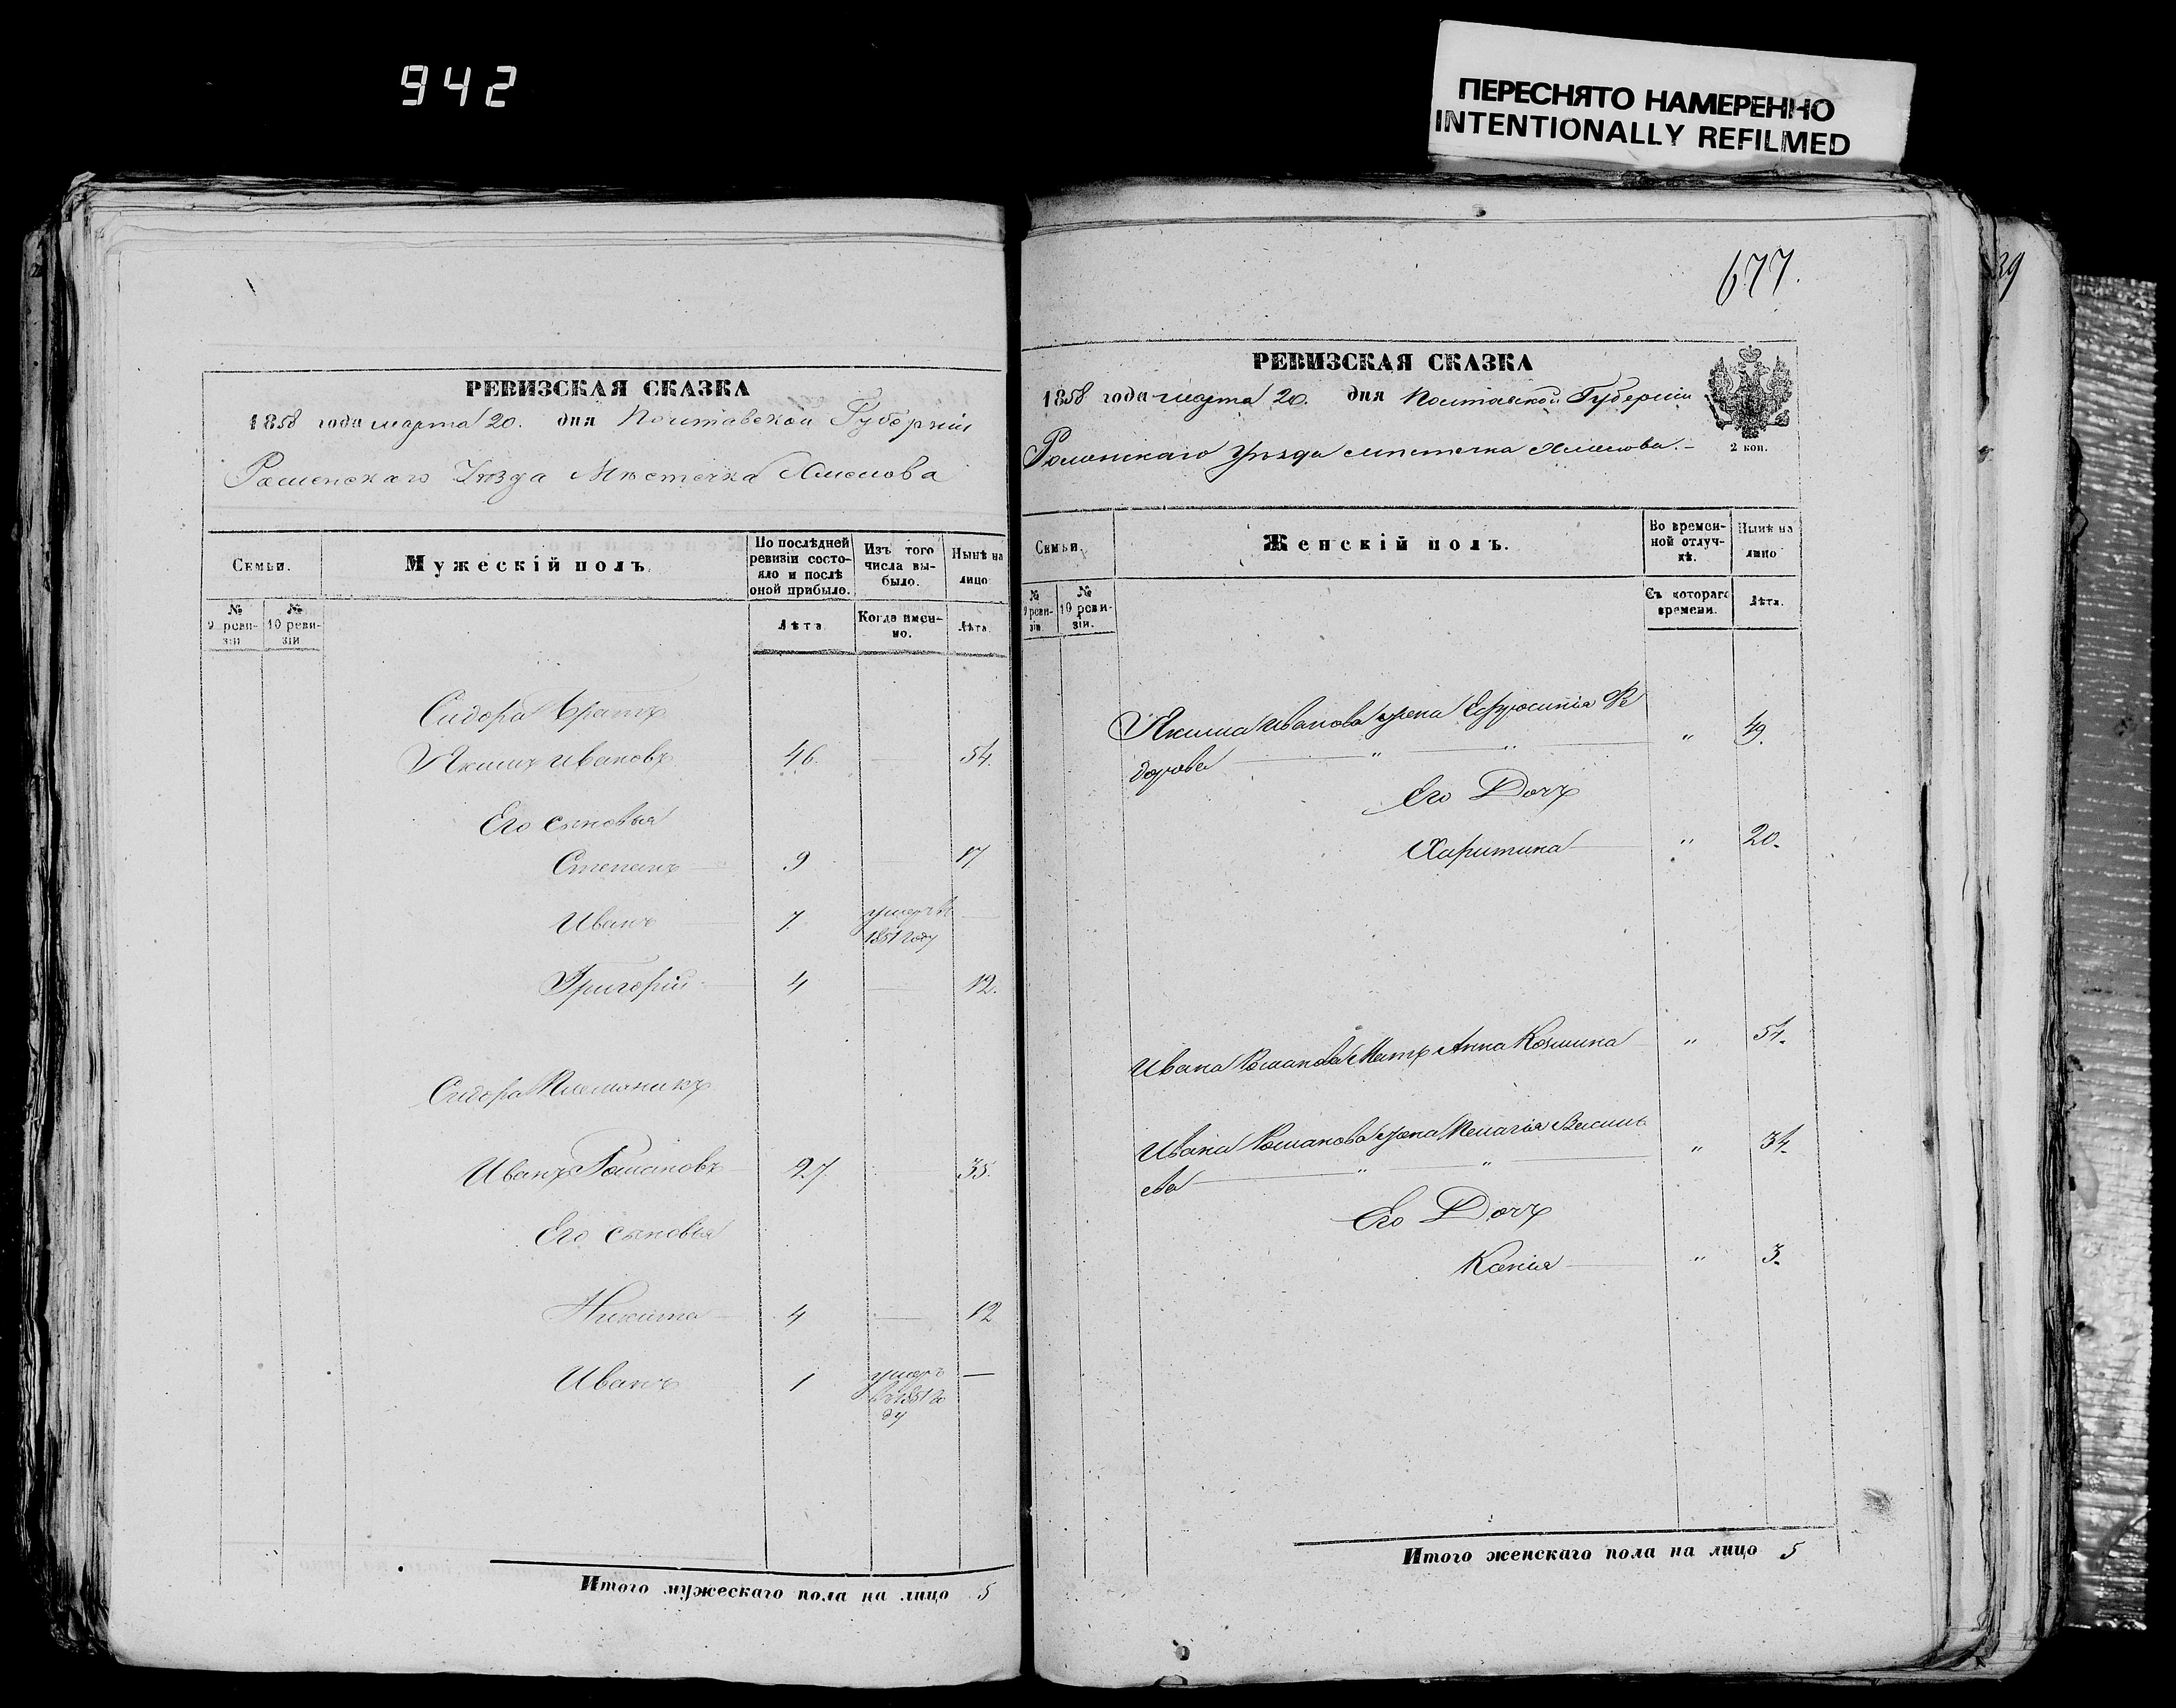 942
ПЕРЕСНЯТО НАМЕРЕННО
INTENTIONALLY REFILMED
РЕВИЗСКАЯ СКАЗКА
1858 года марта 20. дня Полтавской Губерніи
Роменскаго Уѣзда Мѣстечка Хмелова
Семьи.
Мужескій полъ.
По послѣдней ревизіи состояло и послѣ оной прибыло.
Изъ того числа выбыло.
Нынѣ на лицо
№ 9 ревизіи
№ 10 ревизіи
Лѣта
Когда именно.
Лѣта
Сидора братъ
Якимъ Ивановъ 46. 54.
Его сыновья
Степанъ 9 17
Иванъ 7 умеръ въ
1851 году
Григорій 4 12.
Сидора Племяникъ
Иванъ Романовъ 27 35.
Его сыновья
Никита 4 12
Иванъ 1 умеръ
въ 1851 го
ду
Итого мужескаго пола на лицо 5
677.
39
РЕВИЗСКАЯ СКАЗКА
1858 года марта 20. дня Полтавской Губерніи
Роменскаго Уѣзда мѣстечка Хмелова.
2 коп.
Семьи.
Женскій полъ.
Во временной отлучкѣ.
Нынѣ на лицо
№ 9 ревизіи
№ 10 ревизіи.
Съ котораго времени.
Лѣта.
Якима Иванова жена Ефросинія Ѳе
дорова " " " 49.
Его Дочь
Харитина " 20.
Ивана Романова Мать Анна Козмина " 54.
Ивана Романова жена Пелагія Василь
ева " " " 34.
Его Дочь
Ксенія " 3.
Итого женскаго пола на лицо 5